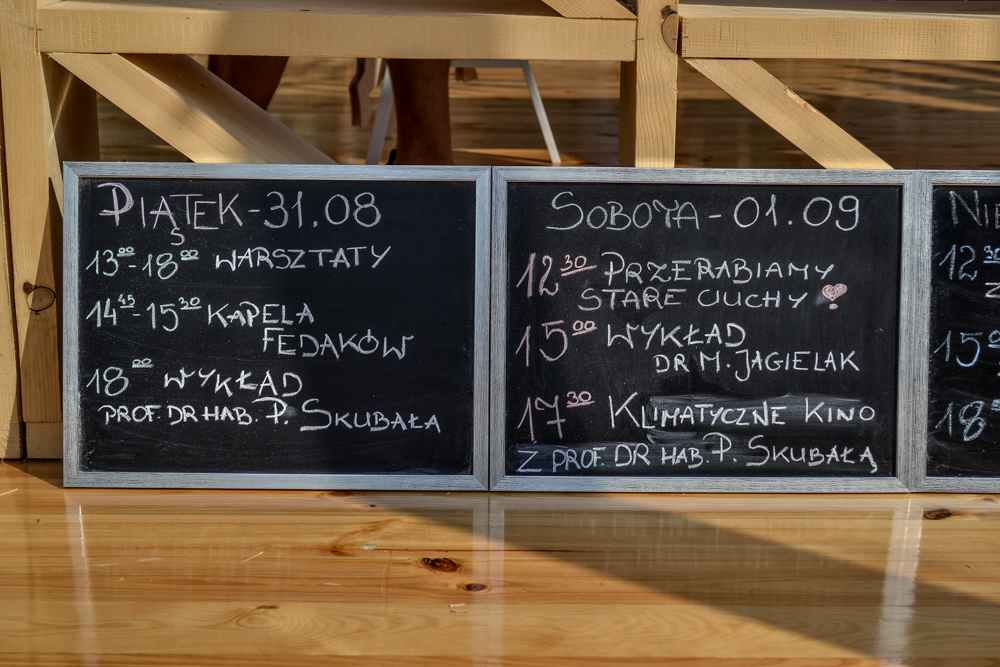 PIĄTEK - 31.08
13⁰⁰ - 18⁰⁰ WARSZTATY
14⁴⁵ - 15³⁰ KAPELA
FEDAKÓW
18⁰⁰ WYKŁAD
PROF. DR HAB. P. SKUBAŁA
SOBOTA - 01.09
12³⁰ PRZERABIAMY
STARE CIUCHY
15⁰⁰ WYKŁAD
DR M. JAGIELAK
17³⁰ KLIMATYCZNE KINO
Z PROF. DR HAB. P. SKUBAŁĄ
12
15
18